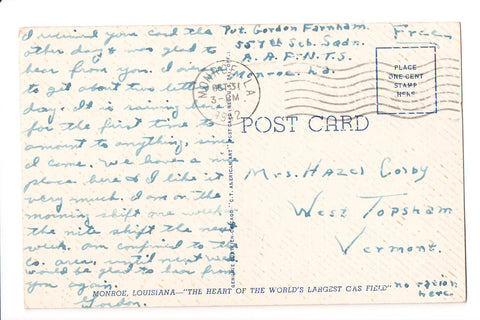 I received your card the
other day & was glad to
hear from you. I
to get about two
day. It is raining here
for the first time to
amount to anything, since
I came. We have a nice
place here & I like it
very much. I am on the
morning shift one week
the nite shift the next
week. am confined to the
Co. area, until next week
would be glad to hear from
you again.
Gordon.
Pvt. Gordon Farnham.
557th Sch. Sqdn.
A.A.F.N.T.S.
Monroe, La.
Free
MONROE, LA
OCT 31
3 PM
PLACE
ONE CENT
STAMP
HERE
POST CARD
Mrs. Hazel Corby
West Topsham
Vermont.
no ration
here.
MONROE, LOUISIANA—"THE HEART OF THE WORLD'S LARGEST GAS FIELD"